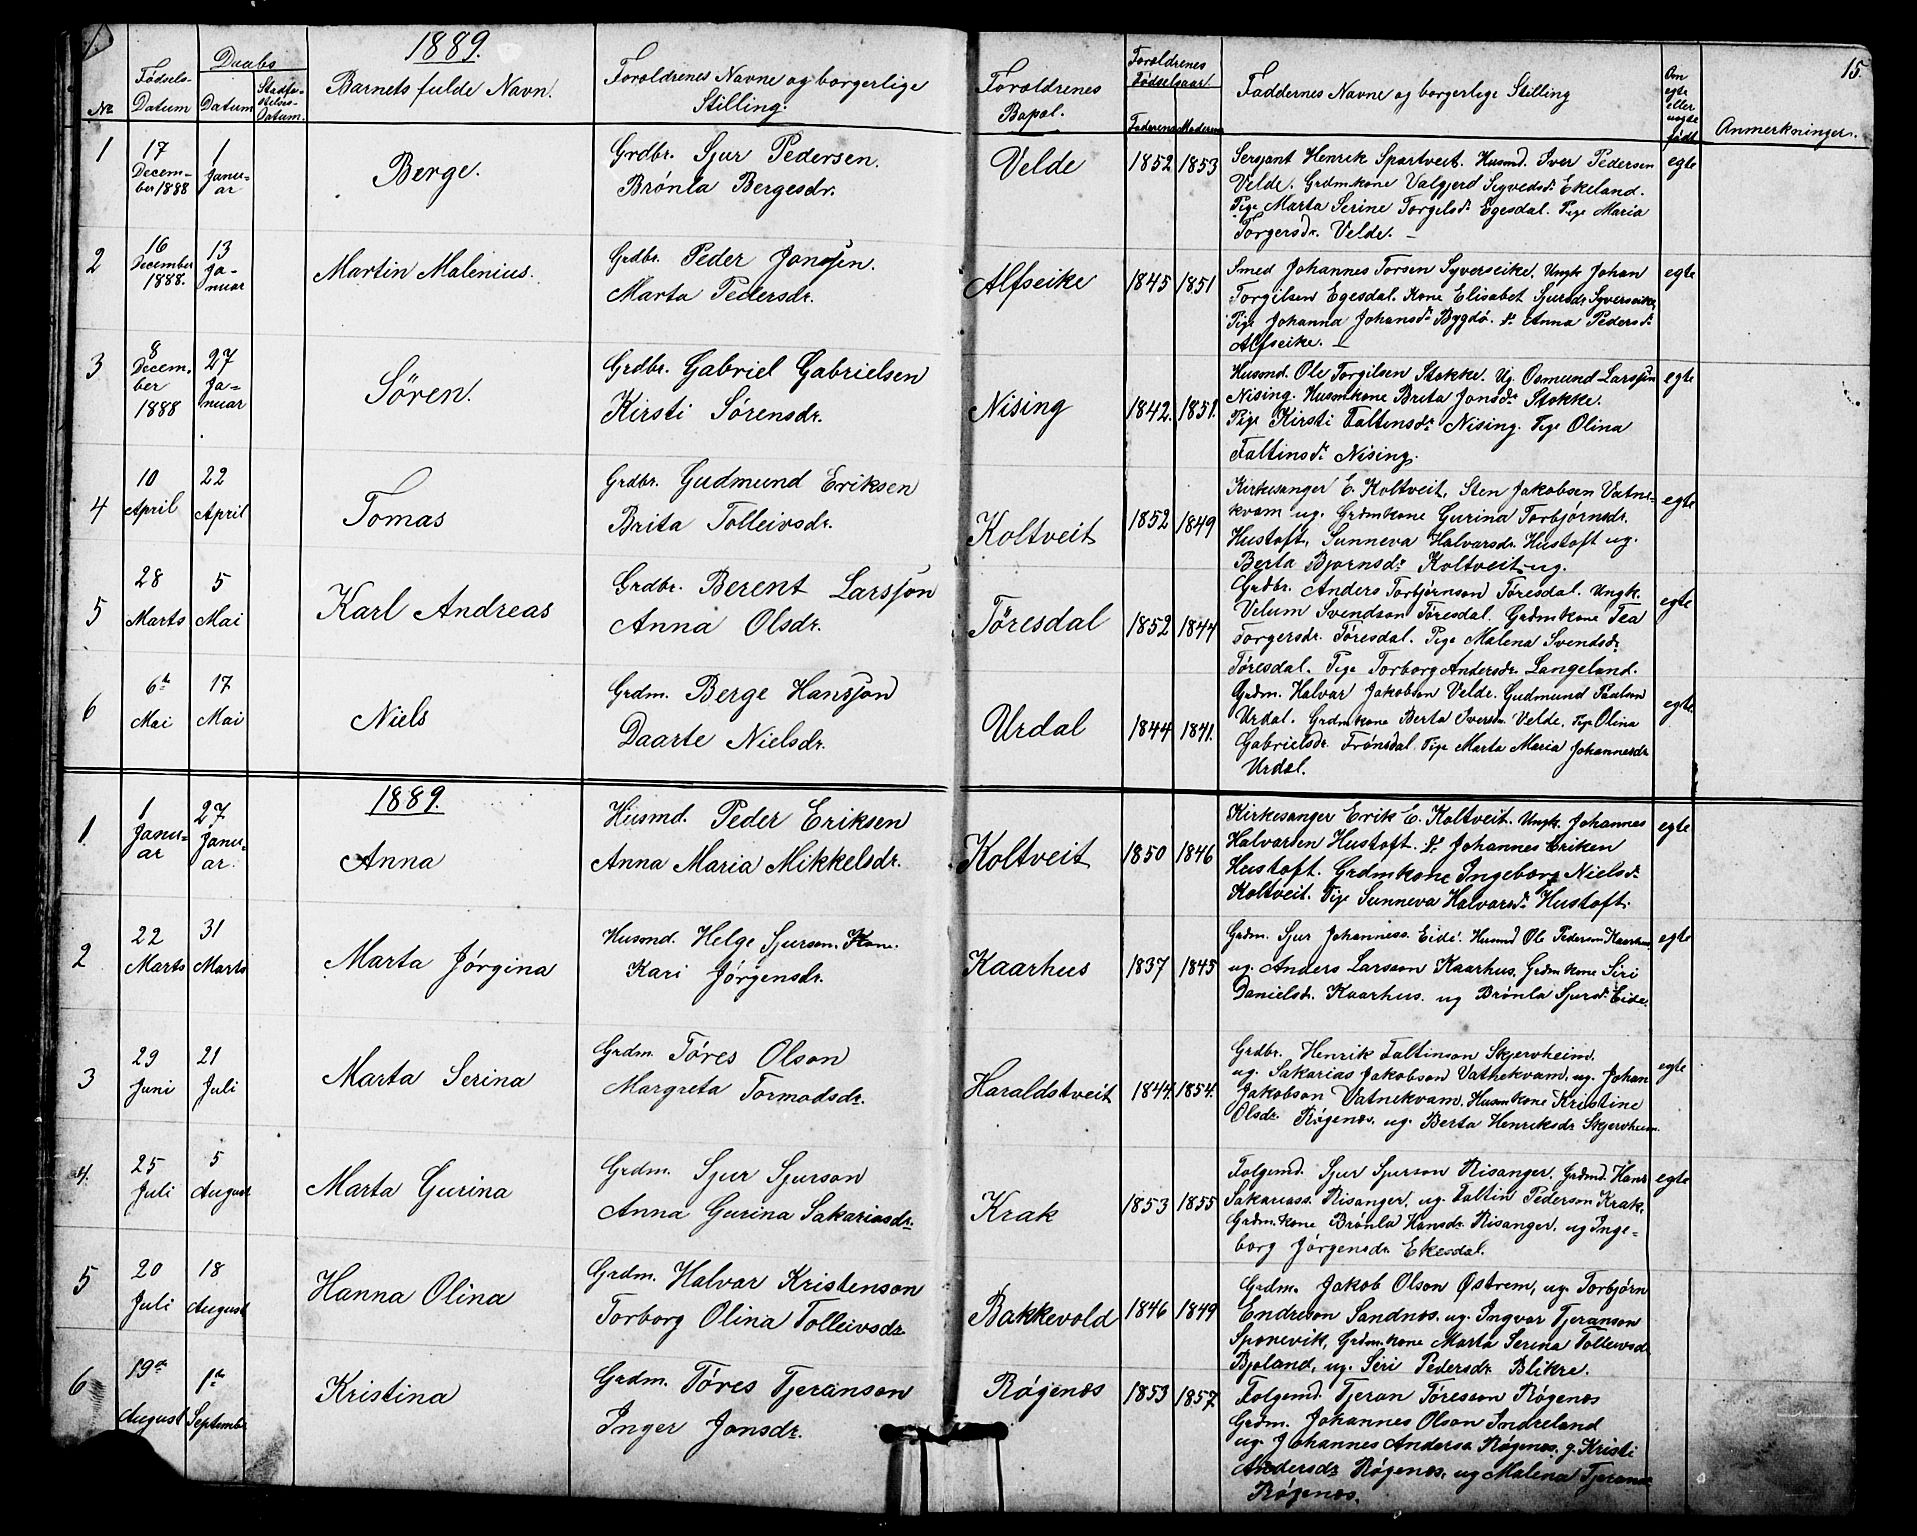 1889.
15.
No.
Fødsels-
Datum
Daabs
Datum
Stadfæ-
stelses-
Datum.
Barnets fulde Navn.
Forældrenes Navne og borgerlige
Stilling.
Forældrenes
Bopæl.
Forældrenes
Fødselsaar.
Faderens Moderens
Faddernes Navne og borgerlige Stilling
Om
egte
eller
uegte
født
Anmerkninger.
1
17
Decem-
ber 1888
1
Janu-
ar
Berge.
Grdbr. Sjur Pedersen.
Brønla Bergesdr.
Velde
1852 1853
Sersjant Henrik Spartveit. Husmd. Iver Pedersen
Velde. Grdmkone Valgjerd Sigvedsdr. Ekeland.
Pige Marta Serine Torgilsdr. Egesdal. Pige Maria
Torgersdr. Velde. –
egte
2
16
December
1888.
13
Ja-
nuar
Martin Malenius.
Grdbr. Peder Jonssen.
Marta Pedersdr.
Alfseike
1845 1851
Smed Johannes Torsen Syverseike. Ungk. Johan
Torgilsen Egesdal. Kone Elisabet Sjursdr Syverseike,
Pige Johanna Johansdr. Bygdø. do. Anna Pedersdr.
Alfseike. –
egte
3
8
Decem-
ber
1888
27
Ja-
nuar
Sören.
Grdbr. Gabriel Gabrielsen
Kirsti Sørensdr.
Nising
1842. 1851.
Husmd. Ole Torgilsen Stokke. Ug. Osmund Larsson
Nising. Husmkone Brita Jonsdr. Stokke.
Pige Kirsti Faltensdr. Nising. Pige Olina
Faltinsdr. Nising.
egte
4
10
April
22
April
Tomas
Grdbr. Gudmund Eriksen
Brita Tolleivsdr.
Koltveit
1852 1849
Kirkesanger E. Koltveit, Sten Jakobsen Vatne-
kvam ug. Grdmkone Gurina Torbjørnsdr.
Hustoft, Sunneva Halvarsdr. Hustoft ug.
Berta Bjornsdr. Koltveit ug.
egte
5
28
Marts
5
Mai
Karl Andreas
Grdbr. Berent Larsson
Anna Olsdr.
Tøresdal
1852 1844
Grdbr. Anders Torbjørnson Tøresdal. Ungk.
Velum Svendson Tøresdal. Grdmkone Tea
Torgersdr. Tøresdal. Pige Malena Svendsdr.
Tøresdal. Pige Torborg Andersdr. Langeland.
egte
6
6te
Mai
17
Mai
Niels
Grdm. Berge Hansson
Daarte Nielsdr.
Urdal
1844 1841.
Grdm. Halvar Jakobson Velde. Gudmund Paulson
Urdal. Grdmkone Berta Iversdr. Velde. Pige Olina
Gabrielsdr. Frønsdal. Pige Marta Maria Johannesdr
Urdal.
egte
1889.
1.
1
Janu-
ar
27
Janu-
ar.
Anna
Husmd. Peder Eriksen
Anna Maria Mikkelsdr.
Koltveit
1850 1846
Kirkesanger Erik E. Koltveit. Ungk. Johannes
Halvarsen Hustoft. do. Johannes Eriken
Hustoft. Grdmkone Ingeborg Nielsdr.
Koltveit. Pige Sunneva Halvarsdr. Hustoft.
egte
2
22
Marts
31
Marts
Marta Jørgina
Husmd. Helge Sjursen. Kone.
Kari Jørgensdr.
Kaarhus
1837 1845
Grdm. Sjur Johanness. Eide. Husmd Ole Pederson Kaarhus
ug. Anders Larsson Kaarhus. Grdmkone Siri
Danielsdr. Kaarhus. ug Brønla Sjursdr. Eide.
egte
3
29
Juni
21
Juli
Marta Serina
Grdm. Tøres Olson
Margreta Tormodsdr.
Haraldstveit
1844. 1854.
Grdbr. Henrik Faltinson Skjervheim,
ug. Sakarias Jakobson Vathekvam, ug. Johan
Jakobson Vatnekvam, Husmkone Kristine
Olsdr. Røgenes. ug. Berta Henriksdr Skjervheim
egte
4.
25
Juli
5
August
Marta Gurina
Grdm. Sjur Sjurson
Anna Gurina Sakariasdr.
Krak
1853 1855
Folgemd. Sjur Sjurson Risanger. Grdmd. Hans
Sakariass. Risanger, ug. Faltin Pederson Krak.
Grdmkone Brønla Hansdr. Risanger. ug Inge-
borg Jørgensdr. Ekesdal.
egte
5
20
Juli
18
August
Hanna Olina
Grdm. Halvar Kristenson
Torborg Olina Tolleivsdr
Bakkevold
1846 1849
Grdm. Jakob Olson Østrem, ug. Torbjørn
Endreson Sandnes. ug. Ingvar Tjeranson
Sponevik, Grdmkone Marta Serina Tolleivsdr.
Bjoland, ug. Siri Pedersdr. Blikre.
6
19de
August
1ste
September
Kristina
Grdm. Tøres Tjeranson
Inger Jonsdr.
Røgenes
1853 1857
Folgemd. Tjeran Tøresson Røgenes
Grdm. Johannes Olson Indreland
ug. Johannes Anderss Røgenes. g. Kristi
Andersdr Røgenes, ug Malena Tjeransdr
Røgenes.